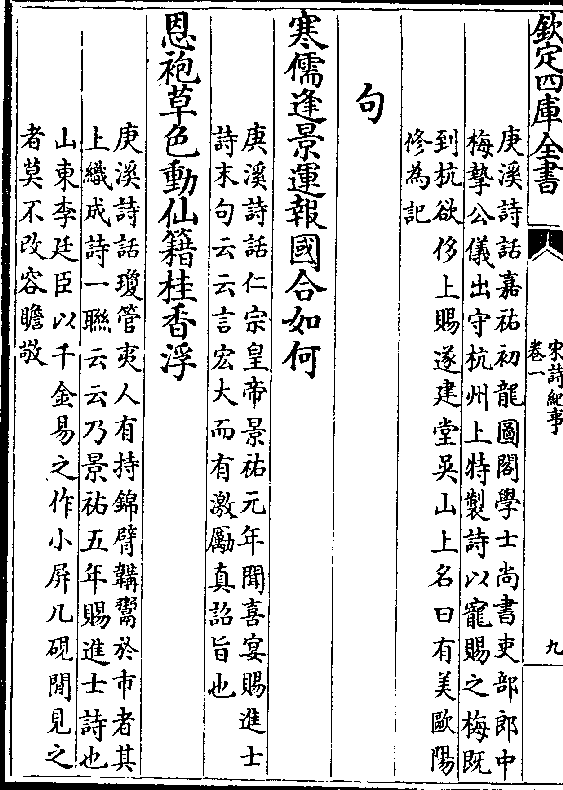 欽定四庫全書
宋詩紀事
卷一
九
庚溪詩話嘉祐初龍圖閣學士尚書吏部郎中
梅摯公儀出守杭州上特製詩以寵賜之梅既
到杭欲侈上賜遂建堂吳山上名曰有美歐陽
修為記
句
寒儒逢景運報國合如何
庚溪詩話仁宗皇帝景祐元年聞喜宴賜進士
詩末句云云言宏大而有激勵真詔旨也
恩袍草色動仙籍桂香浮
庚溪詩話瓊管夷人有持錦臂韝鬻於市者其
上織成詩一聯云云乃景祐五年賜進士詩也
山東李廷臣以千金易之作小屏几硯間見之
者莫不改容瞻敬